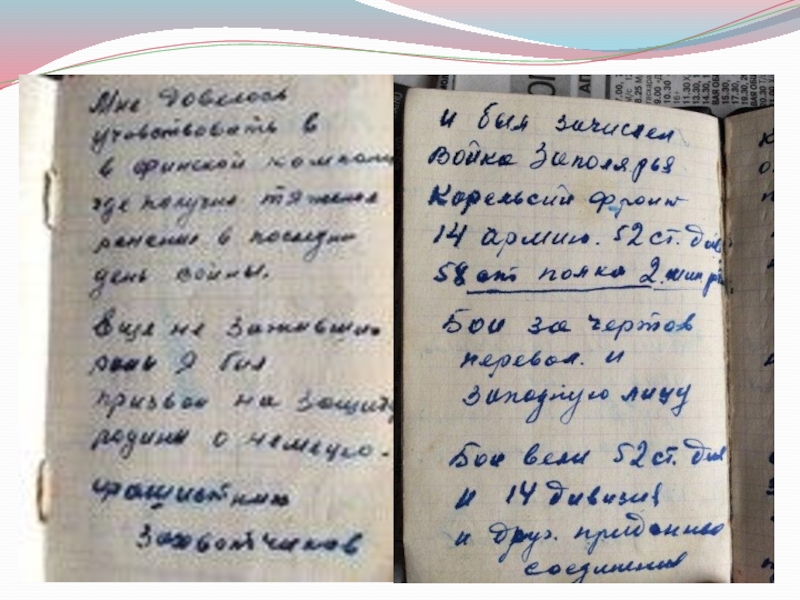 Мне довелось
участвовать в
в финской компании
где получил тяжелое
ранение в последни
день войны.
Еще не зажившие
раны я был
призван на защиту
родины о немецко-
фашистких
Захватчиков
и был зачислен
Войка Заполярья
Карельсий фронт
14 армию. 52 ст. див
58 ап полка 2
Бои за чертов
перевал. и
западную лицу
Бои вели 52 ст. див
и 14 дивизия
и друг. приданные
соединения